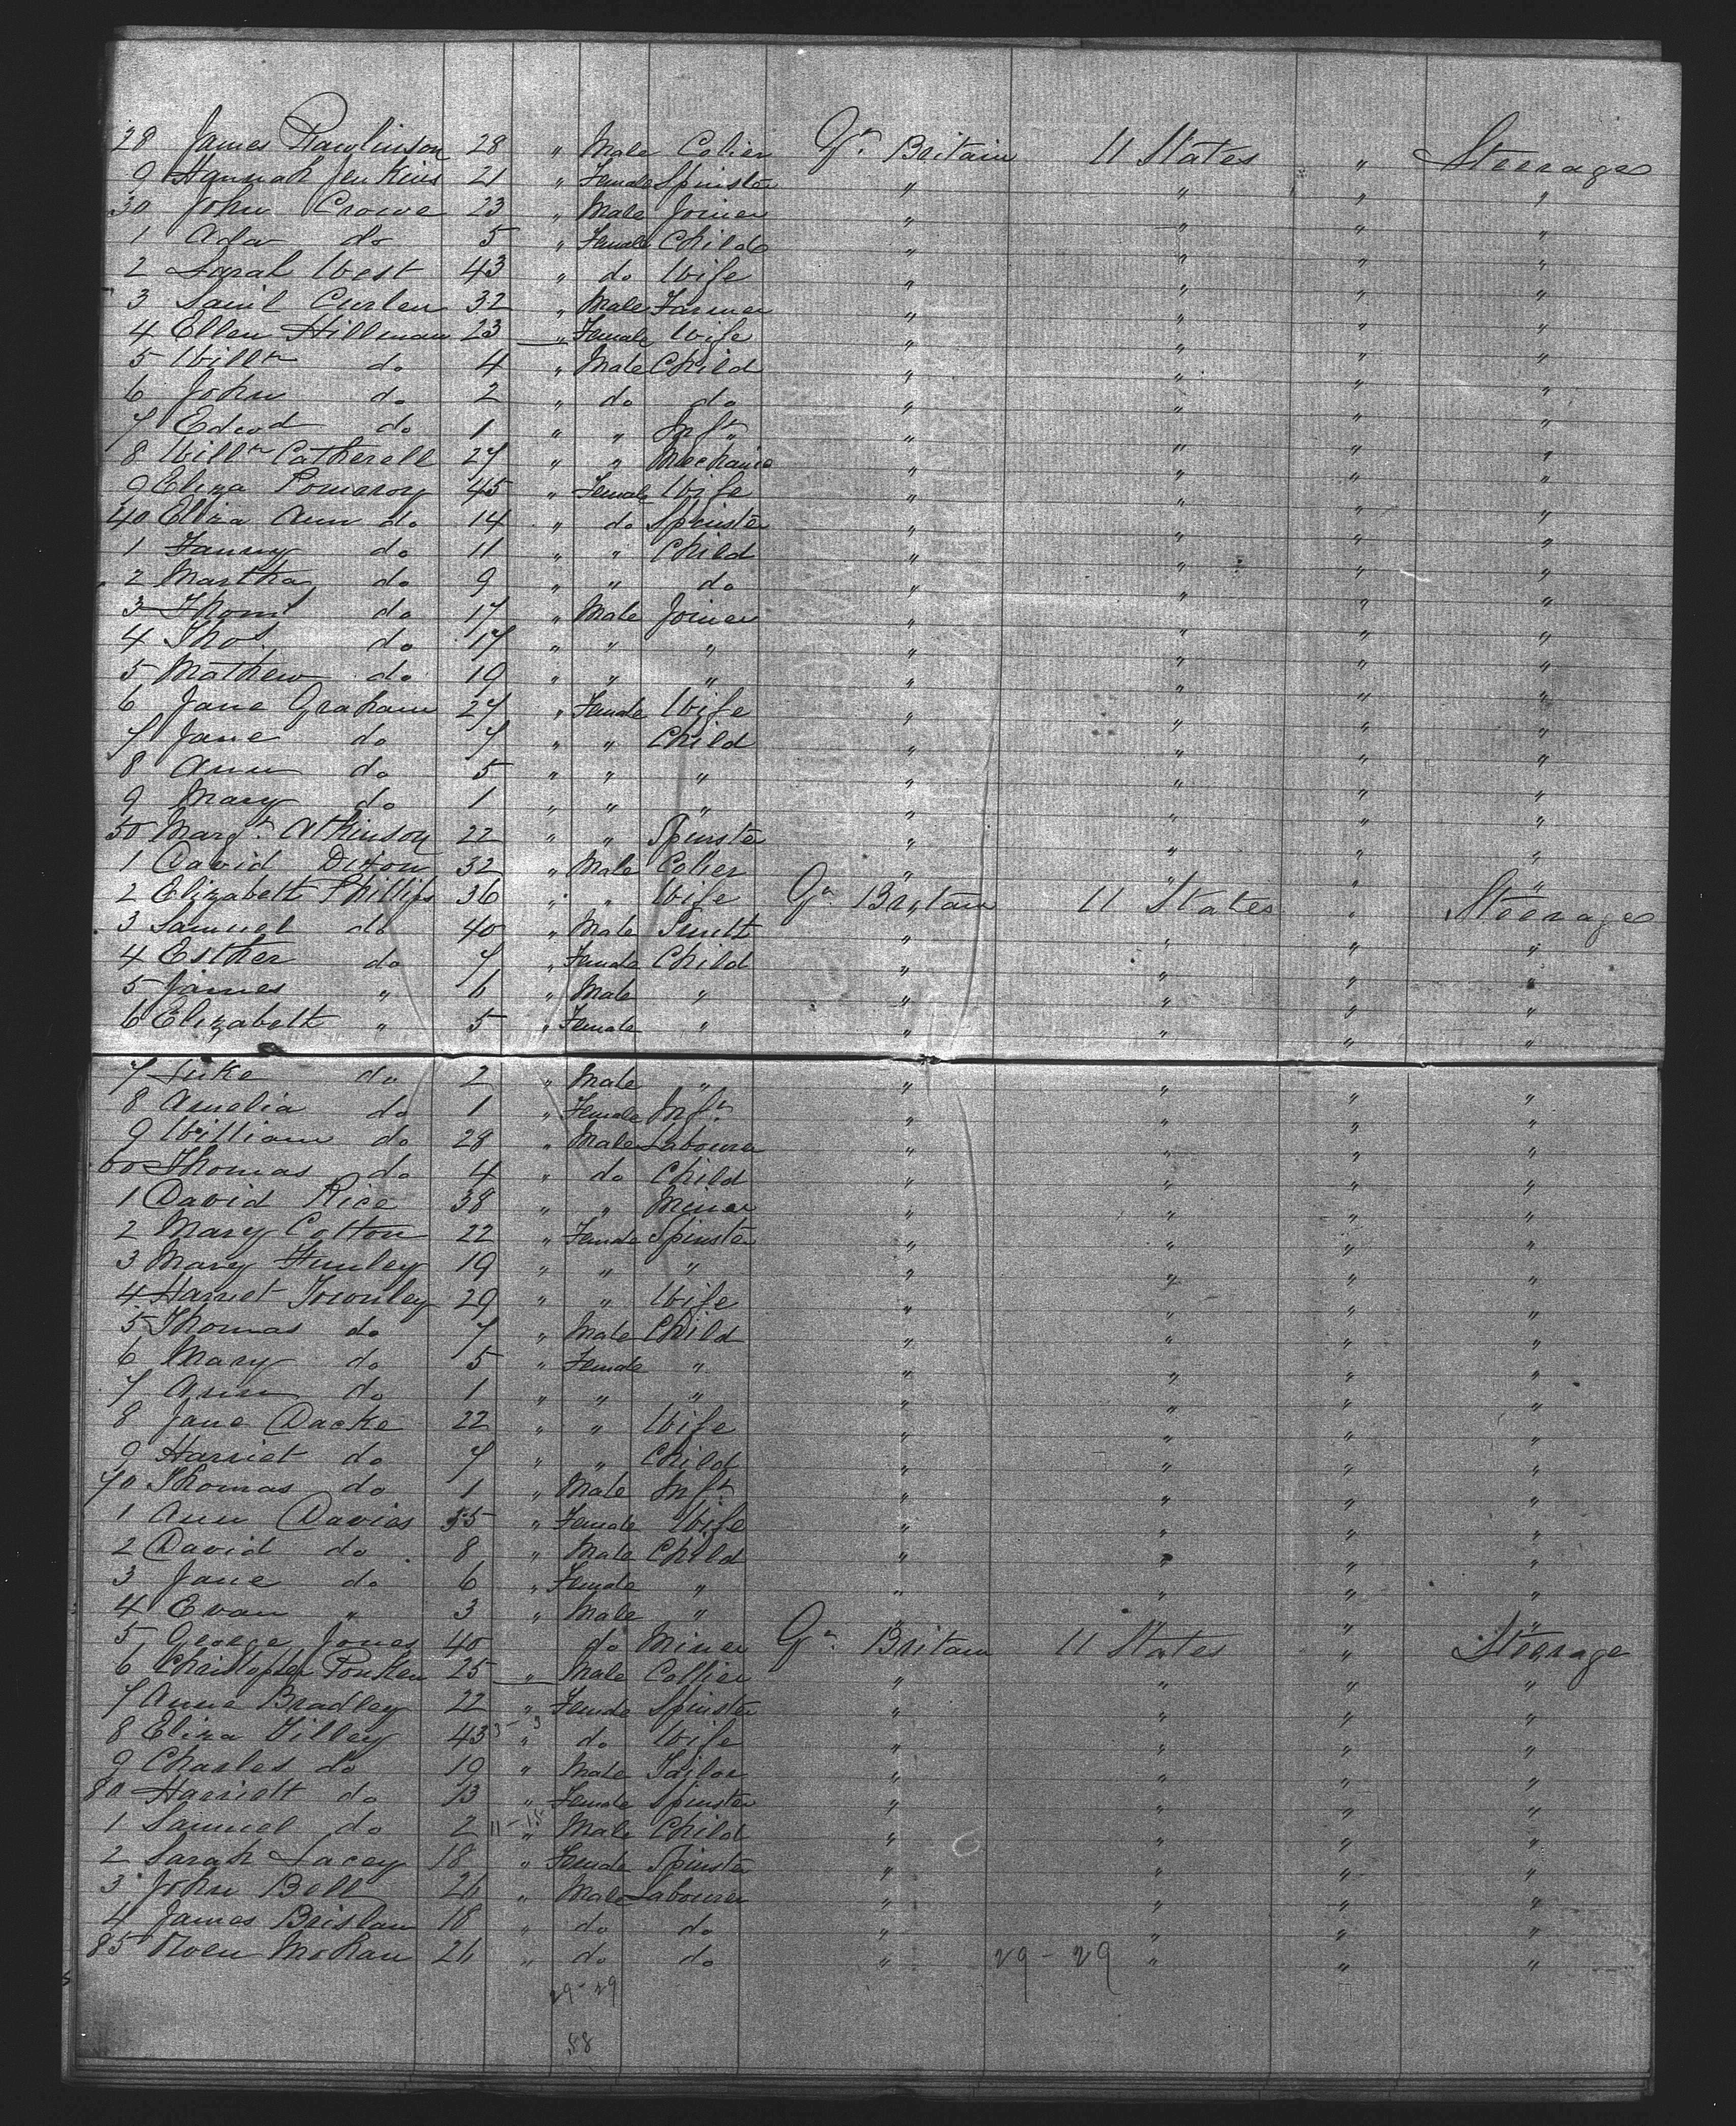 28 James Rawlinson 28 " Male Colier Gt. Britain U States " Steerage
9 Hannah Jenkins 21 " Female Spinster " " " "
30 John Crowe 23 " Male Joiner " " " "
1 Ada do 5 " Female Child " " " "
2 Sarah West 43 " do Wife " " " "
3 Saml Curlen 32 " Male Farmer " " " "
4 Ellen Hillman 23 " Female Wife " " " "
5 Willm do 4 " Male Child " " " "
6 John do 2 " do do " " " "
7 Edwd do 1 " " Inft " " " "
8 Willm Catherell 27 " " Mechanic " " " "
9 Eliza Pomeroy 45 " Female Wife " " " "
40 Eliza Ann do 14 " do Spinster " " " "
1 Fanny do 11 " " Child " " " "
2 Martha do 9 " " do " " " "
3 do 17 " Male Joiner " " " "
4 Thos. do 17 " " " " " " "
5 Mathew do 19 " " " " " " "
6 Jane Graham 27 " Female Wife " " " "
7 Jane do 7 " " Child " " " "
8 Ann do 5 " " " " " " "
9 Mary do 1 " " " " " " "
50 Margt. Atkinson 22 " " Spinster " " " "
1 David Dixon 32 " Male Colier " " " "
2 Elizabeth Phillips 36 " " Wife Gt. Britain U States " Steerage
3 Samuel do 40 " Male Smith " " " "
4 Esther do 7 " Female Child " " " "
5 James " 6 " Male " " " " "
6 Elizabeth " 5 " Female " " " " "
7 Luke do 2 " Male " " " " "
8 Amelia do 1 " Female Inft " " " "
9 William do 28 " Male Labourer " " " "
60 Thomas do 4 " do Child " " " "
1 David Rice 38 " " Miner " " " "
2 Mary Cotton 22 " Female Spinster " " " "
3 Mary 19 " " " " " " "
4 Harriet Townley 29 " " Wife " " " "
5 Thomas do 7 " Male Child " " " "
6 Mary do 5 " Female " " " " "
7 Ann do 1 " " " " " " "
8 Jane Dacke 22 " " Wife " " " "
9 Harriet do 7 " " Child " " " "
70 Thomas do 1 " Male Inft " " " "
1 Ann Davies 35 " Female Wife " " " "
2 David do 8 " Male Child " " " "
3 Jane do 6 " Female " " " " "
4 Evan " 3 " Male " " " " "
5 George Jones 40 do Miner Gt. Britain U States " Steerage
6 Christopher 25 " Male Collier " " " "
7 Anne Bradley 22 " Female Spinster " " " "
8 Eliza Tilley 43 3 - 3 " do Wife " " " "
9 Charles do 19 " Male Tailor " " " "
80 Harriett do 13 " Female Spinster " " " "
1 Samuel do 2 11 - 15 " Male Child " " " "
2 Sarah Lacey 18 " Female Spinster " " " "
3 John Bell 26 " Male Labourer " " " "
4 James Brislan 18 " do do " " " "
85 Mohan 26 " do do " 29 - 29 " " "
29 - 29
58